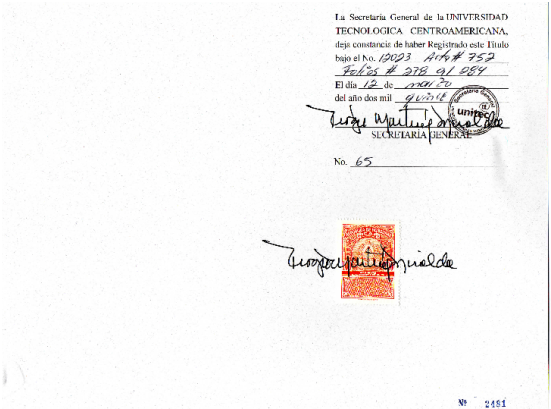 La Secretaría General de la UNIVERSIDAD
TECNOLOGICA CENTROAMERICANA,
deja constancia de haber Registrado este Título
bajo el No. 12023 Acta # 752
Folios # 278 al 284
El día 12 de marzo
del año dos mil quince
Secretaría General
unitec
SECRETARÍA GENERAL
No. 65
Nº 2481